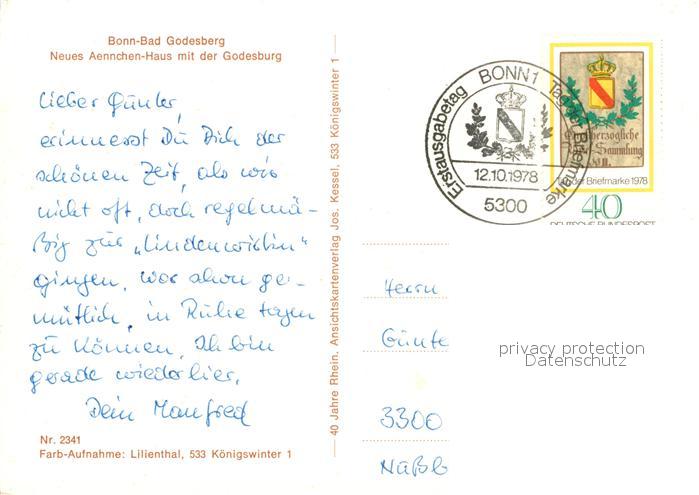 Bonn-Bad Godesberg
Neues Aennchen-Haus mit der Godesburg
Lieber Günter,
erinnerst Du Dich der
schönen Zeit, als wir
nicht oft, doch regelmä-
ßig zur „Lindenwirtin"
gingen, war schon ge-
mütlich, in Ruhe tagen
zu können. Ich bin
gerade wieder hier.
Dein Manfred
Nr. 2341
Farb-Aufnahme: Lilienthal, 533 Königswinter 1
40 Jahre Rhein. Ansichtskartenverlag Jos. Kessel, 533 Königswinter 1
Erstausgabetag BONN 1 Tag der Briefmarke
12.10.1978
5300
Grossherzogliche
Sammlung
Tag der Briefmarke 1978
40
DEUTSCHE BUNDESPOST
Herrn
Günte
3300
privacy protection
Datenschutz